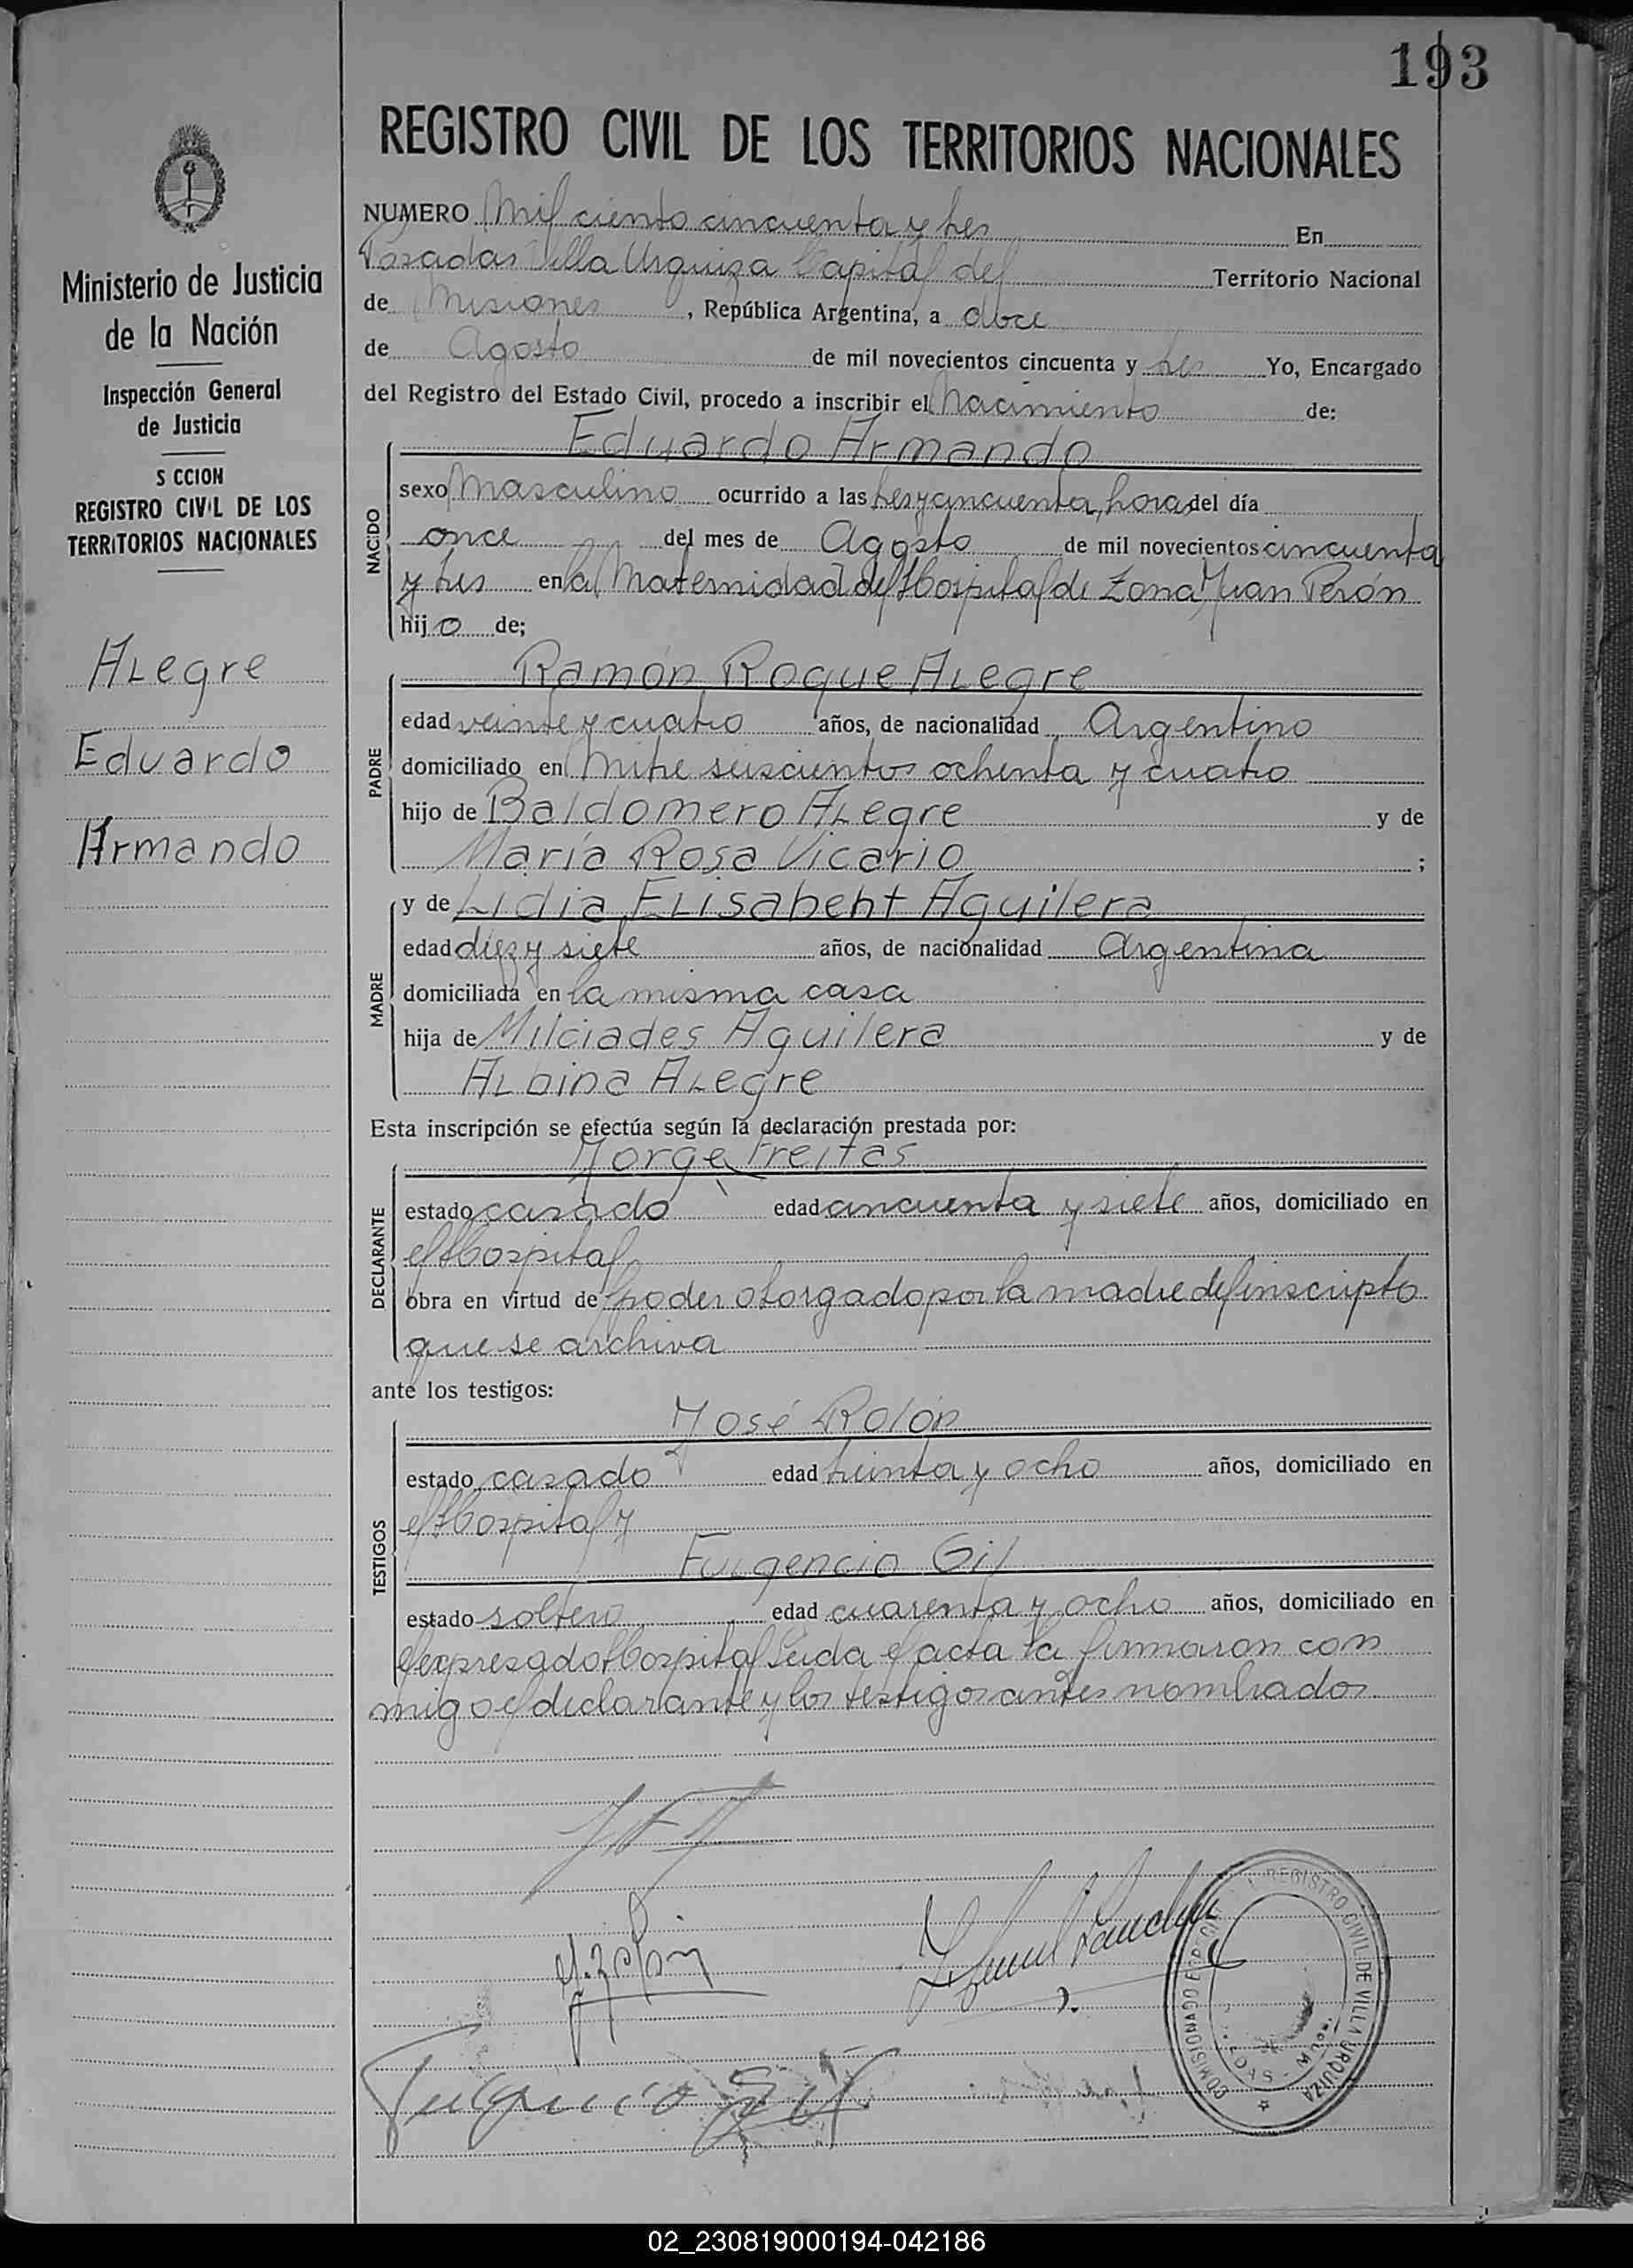 193
REGISTRO CIVIL DE LOS TERRITORIOS NACIONALES
Ministerio de Justicia
de la Nación
Inspección General
de Justicia
S CCION
REGISTRO CIVIL DE LOS
TERRITORIOS NACIONALES
Alegre
Eduardo
Armando
NUMERO Mil ciento cincuenta y tres En
Posadas Villa Urquiza Capital del Territorio Nacional
de Misiones, República Argentina, a doce
de Agosto de mil novecientos cincuenta y tres Yo, Encargado
del Registro del Estado Civil, procedo a inscribir el Nacimiento de:
NACIDO
Eduardo Armando
sexo Masculino ocurrido a las tres y cincuenta, horas del día
once del mes de Agosto de mil novecientos cincuenta
y tres en la Maternidad del Hospital de Zona Juan Perón
hijo de;
PADRE
Ramón Roque Alegre
edad veinte y cuatro años, de nacionalidad Argentino
domiciliado en Mitre seiscientos ochenta y cuatro
hijo de Baldomero Alegre y de
María Rosa Vicario ;
MADRE
y de Lidia Elisabeht Aguilera
edad diez y siete años, de nacionalidad Argentina
domiciliada en la misma casa
hija de Milciades Aguilera y de
Albina Alegre
Esta inscripción se efectúa según la declaración prestada por:
DECLARANTE
Jorge Freitas
estado casado edad cincuenta y siete años, domiciliado en
el Hospital
obra en virtud del poder otorgado por la madre del inscripto
que se archiva
ante los testigos:
TESTIGOS
José Rolón
estado casado edad treinta y ocho años, domiciliado en
el Hospital y
Fulgencio Gil
estado soltero edad cuarenta y ocho años, domiciliado en
el expresado Hospital Leida el acta la firmaron con
migo el declarante y los testigos antes nombrados.
Fulgencio Gil
REGISTRO CIVIL DE VILLA URQUIZA
02_230819000194-042186